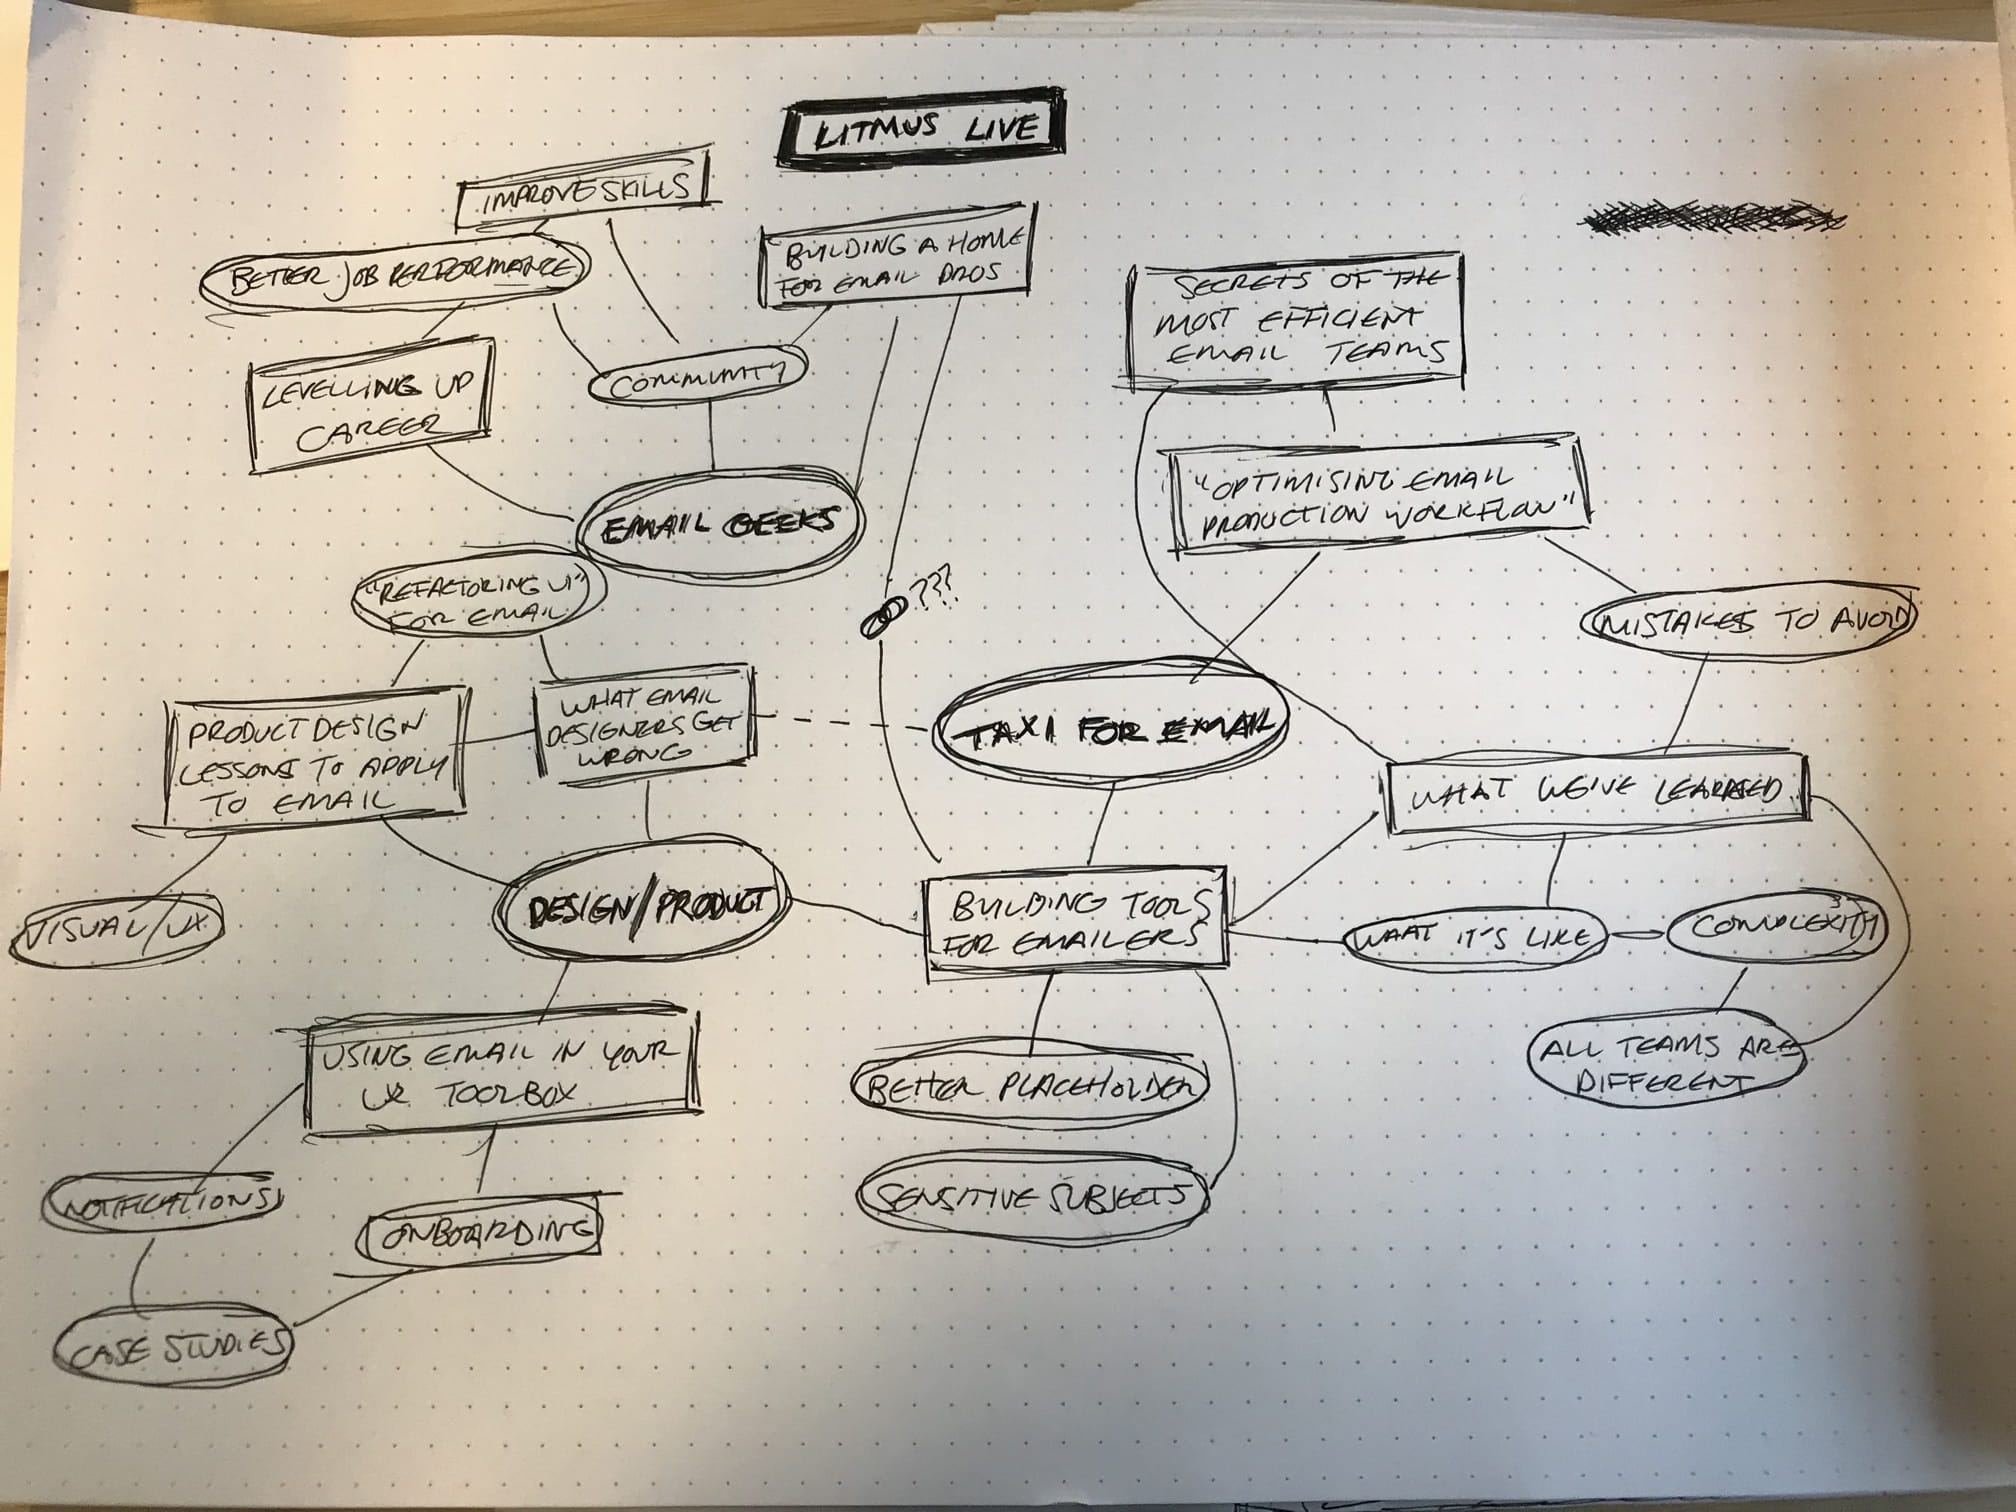 LITMUS LIVE
IMPROVE SKILLS
BETTER JOB PERFORMANCE
BUILDING A HOME
FOR EMAIL PROS
SECRETS OF THE
MOST EFFICIENT
EMAIL TEAMS
LEVELLING UP
CAREER
COMMUNITY
"OPTIMISING EMAIL
PRODUCTION WORKFLOW"
EMAIL GEEKS
"REFACTORING UI"
FOR EMAIL
???
MISTAKES TO AVOID
PRODUCT DESIGN
LESSONS TO APPLY
TO EMAIL
WHAT EMAIL
DESIGNERS GET
WRONG
TAXI FOR EMAIL
WHAT WE'VE LEARNED
VISUAL/UX
DESIGN/PRODUCT
BUILDING TOOLS
FOR EMAILERS
WHAT IT'S LIKE
COMPLEXITY
USING EMAIL IN YOUR
UX TOOLBOX
BETTER PLACEHOLDER
ALL TEAMS ARE
DIFFERENT
NOTIFICATIONS
ONBOARDING
SENSITIVE SUBJECTS
CASE STUDIES